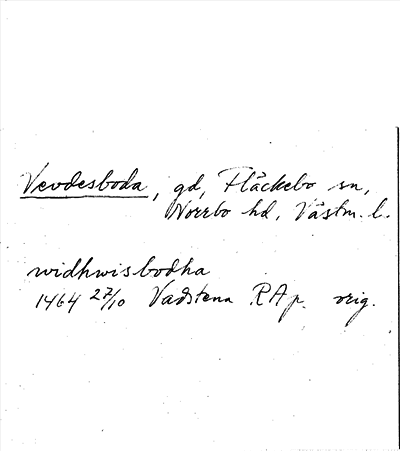 Vevdesboda, gd, Fläckebo sn,
Norrbo hd, Västm. l.
widhwisbodha
1464 27/10 Vadstena RAp. orig.